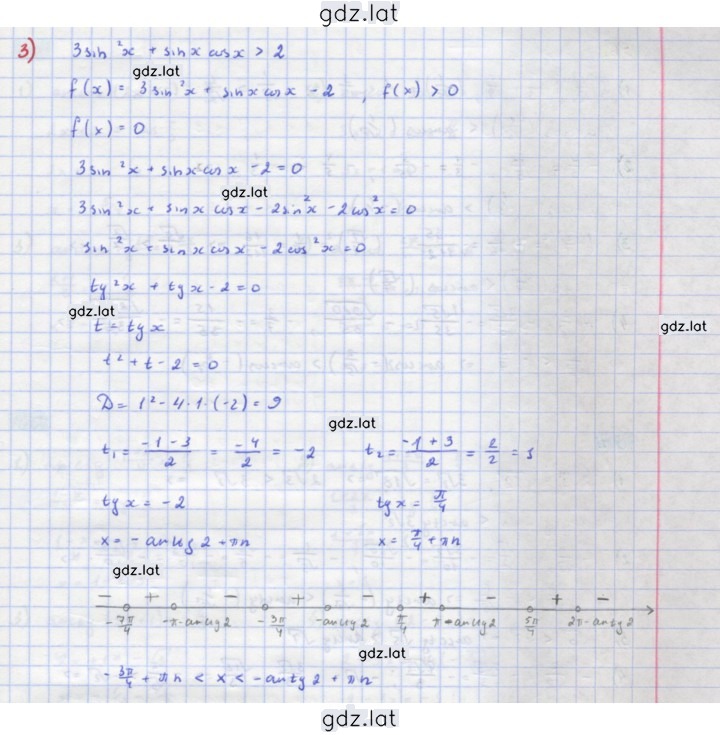 gdz.lat
3) 3sin²x + sinx cosx > 2
gdz.lat
f(x) = 3sin²x + sinx cosx - 2 , f(x) > 0
f(x) = 0
3sin²x + sinx cosx - 2 = 0
gdz.lat
3sin²x + sinx cosx - 2sin²x - 2cos²x = 0
sin²x + sinx cosx - 2cos²x = 0
tg²x + tgx - 2 = 0
gdz.lat
t = tgx
gdz.lat
t² + t - 2 = 0
D = 1² - 4·1·(-2) = 9
gdz.lat
t₁ = (-1-3)/2 = -4/2 = -2 t₂ = (-1+3)/2 = 2/2 = 1
tgx = -2 tgx = π/4
x = -arctg2 + πn x = π/4 + πn
gdz.lat
- + - + - + - + -
-7π/4 -π-arctg2 -3π/4 -arctg2 π/4 π-arctg2 5π/4 2π-arctg2
gdz.lat
-3π/4 + πn < x < -arctg2 + πn
gdz.lat